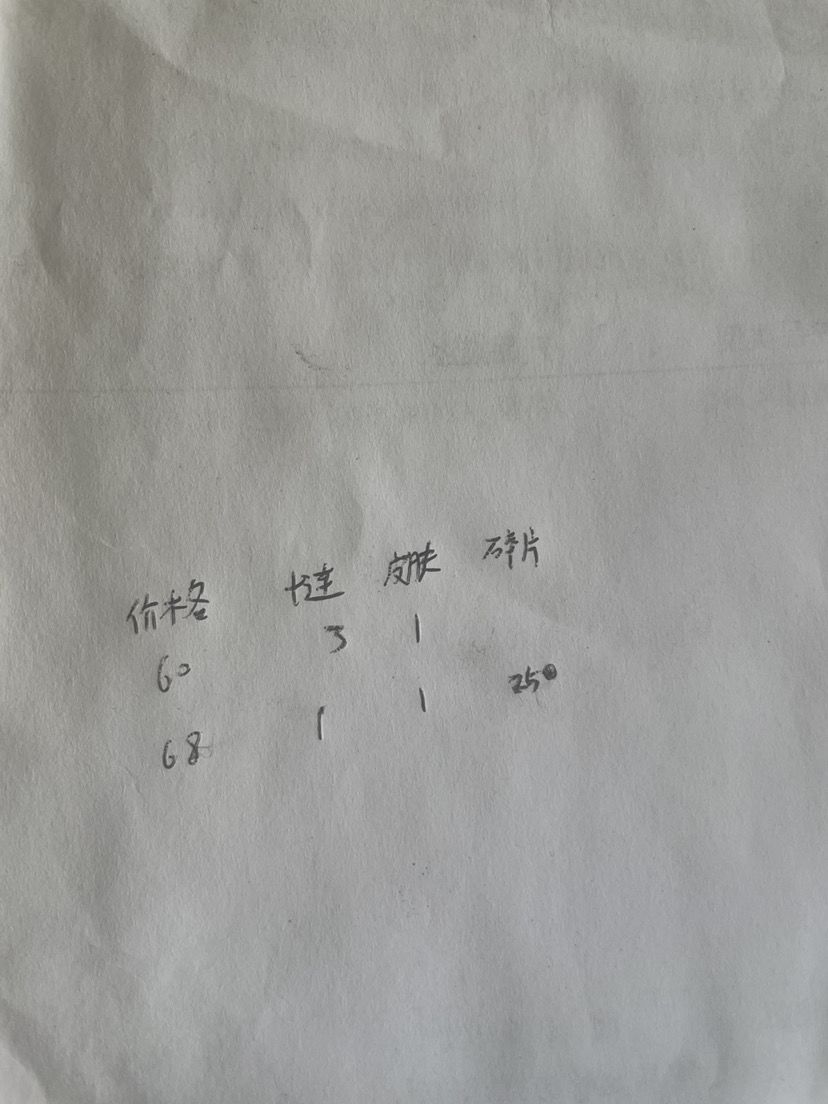 价格 大连 皮肤 碎片
60 3 1
68 1 1 250